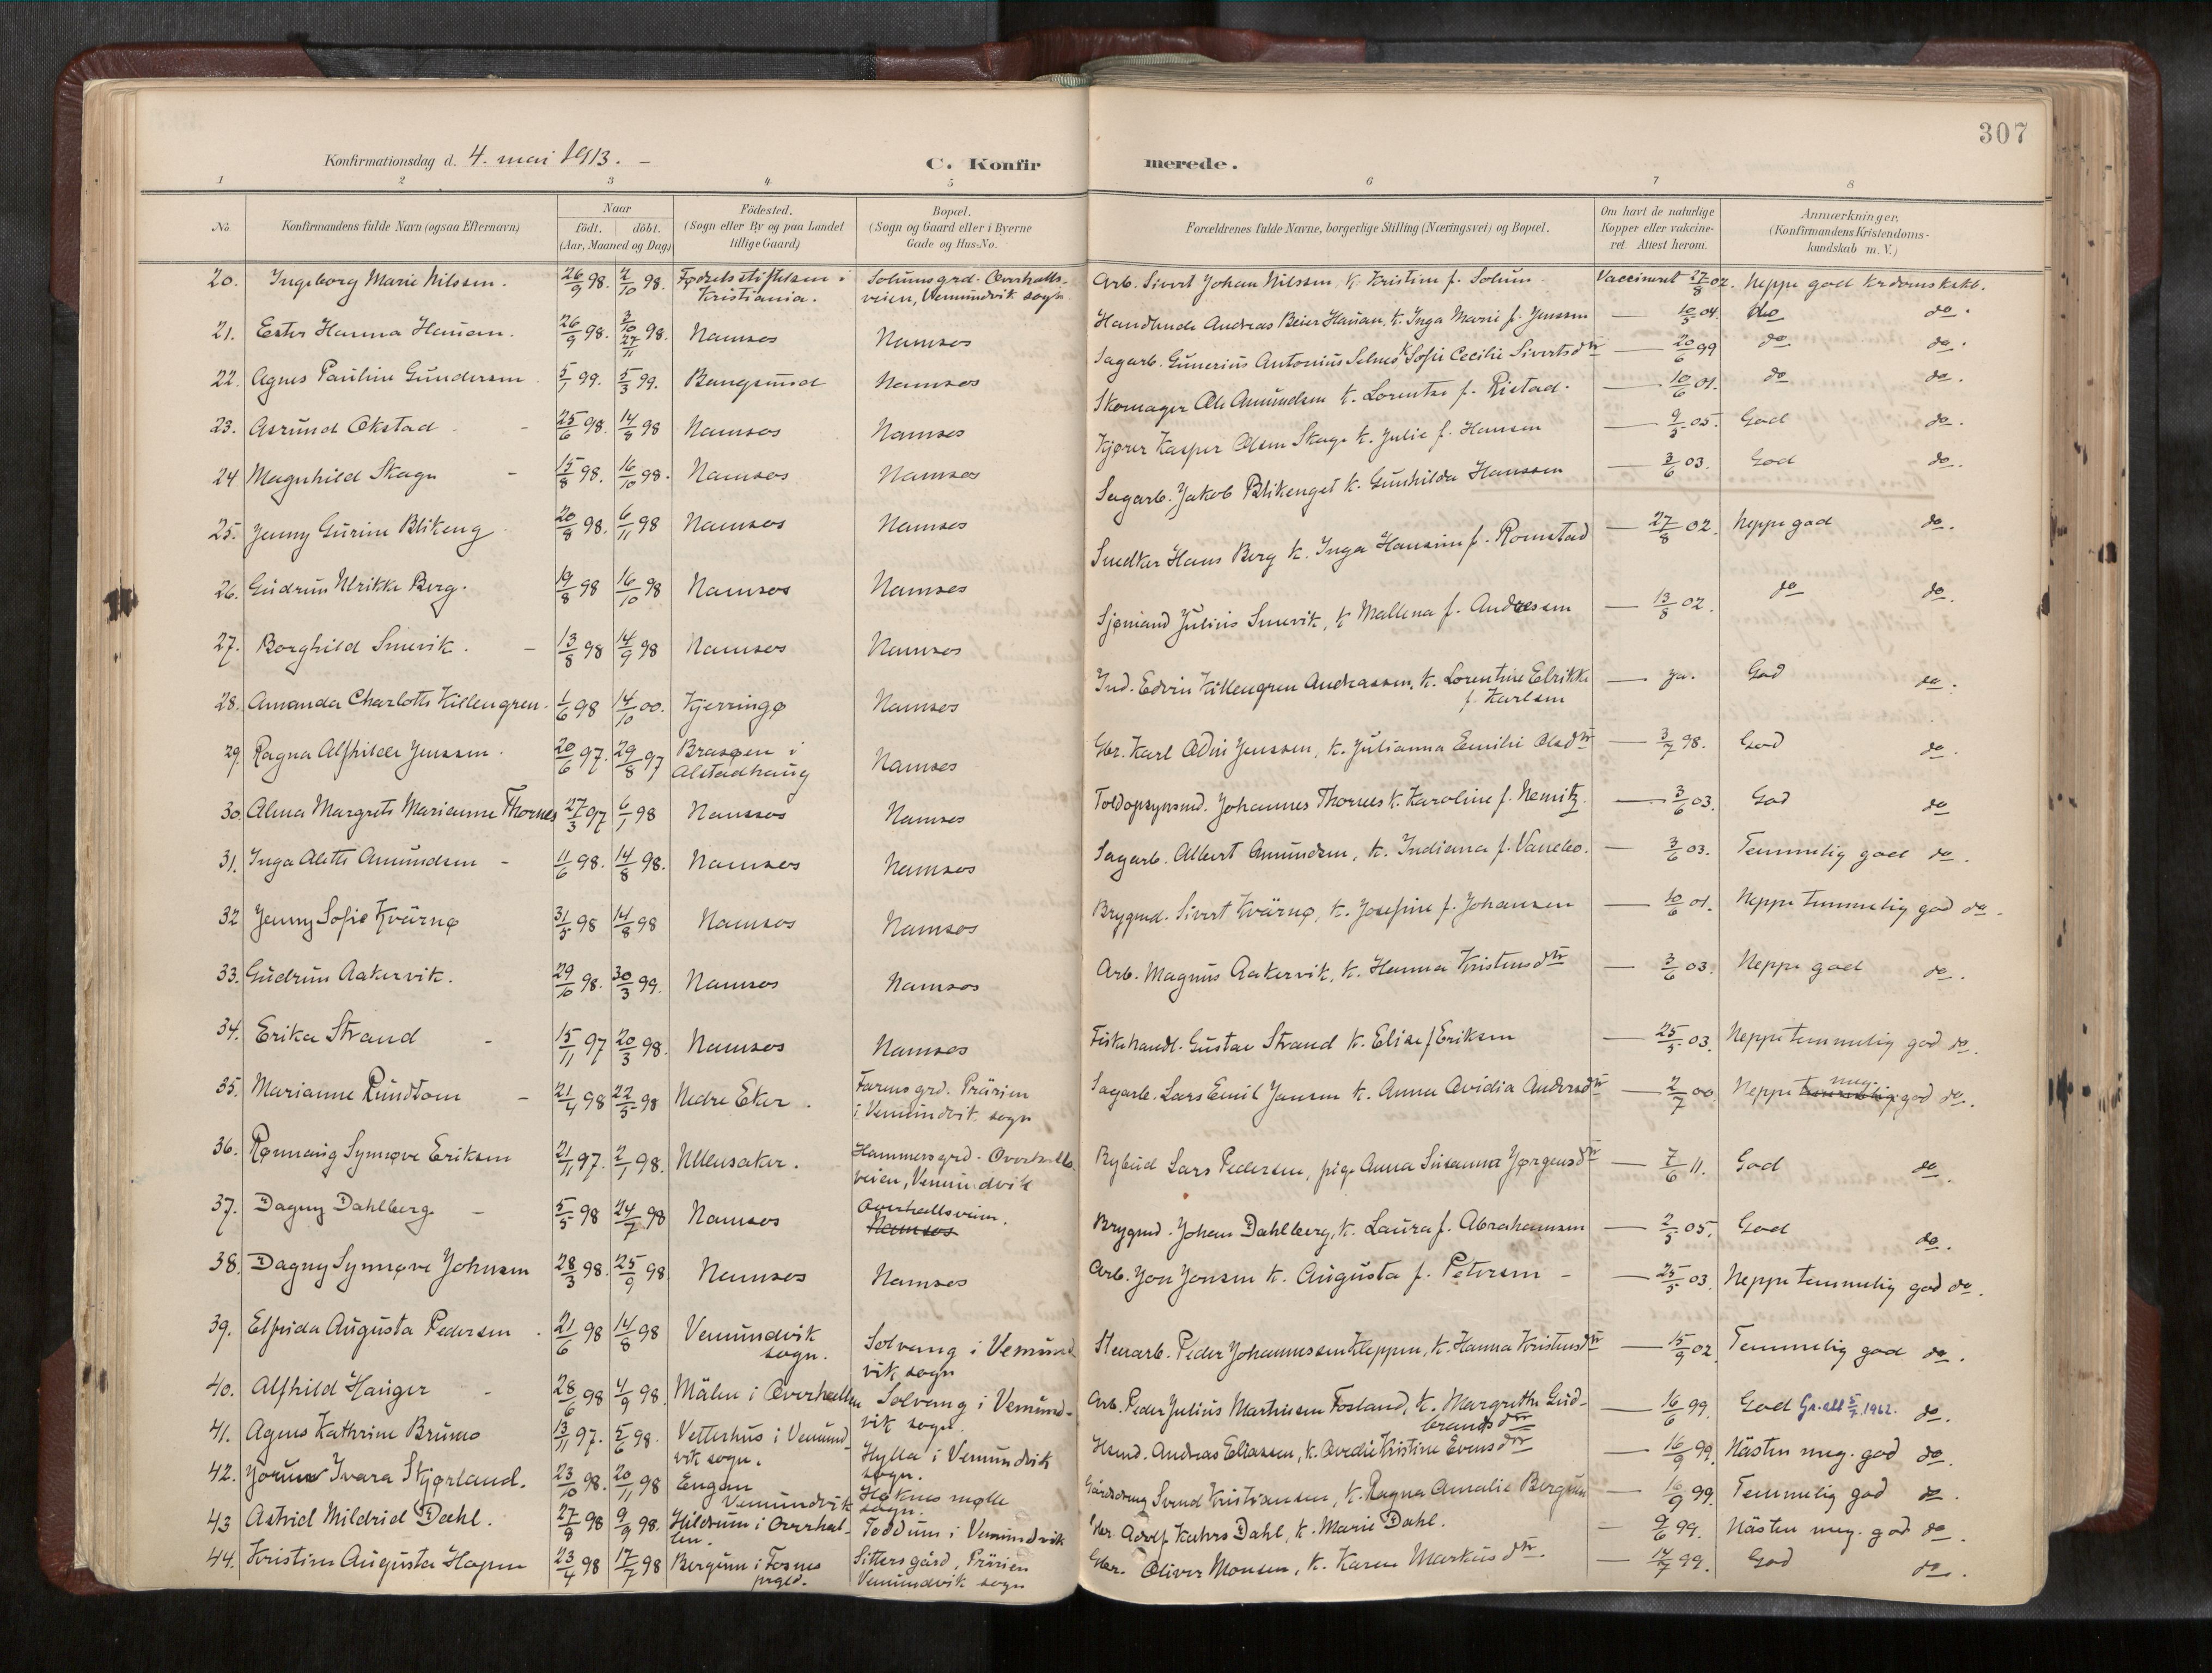 307
Konfirmationsdag d. 4. mai 1913. –
C. Konfir merede.
1 2 3 4 5 6 7 8
No
Konfirmandens fulde Navn (ogsaa Efternavn)
Naar
født. döbt.
(Aar, Maaned og Dag)
Födested.
(Sogn eller By og paa Landet
tillige Gaard)
Bopæl.
(Sogn og Gaard eller i Byerne
Gade og Hus-No.
Forældrenes fulde Navne, borgerlige Stilling (Næringsvei) og Bopæl.
Om havt de naturlige
Kopper eller vakcine-
ret Attest herom.
Anmærkninger.
(Konfirmandens Kristendoms-
kundskab m. V.)
20. Ingeborg Marie Nilssen. 26/9 98. 2/10 98. Fødselsstiftelsen i Kristiania. Solumsgrd. Overhalls-veien, Vemundvik sogn Arb. Sivert Johan Nilssen k. Kristine f. Solum Vaccineret 27/8 02. Neppe god krdomskskb.
21. Ester Hanna Hauan. 26/9 98. 3/10 27/11 98. Namsos Namsos Handlende Andreas Beier Hauan, k. Inga Marie f. Jenssen — 10/5 04. do do.
22. Agnes Pauline Gundersen 5/1 99. 5/3 99. Bangsund Namsos Sagarb. Gunerius Antonius Selnes k Sofie Cecilie Sivertsdtr — 20/6 99 do do.
23. Asrund Okstad 25/6 98. 14/8 98 Namsos Namsos Skomager Ole Amundsen k. Lorentse f. Ristad. — 10/6 01. do do.
24 Magnhild Skage 15/8 98. 16/10 98. Namsos Namsos Kjører Kasper Olsen Skage k. Julie f. Hansen — 9/5 05. God do.
25. Jenny Gurine Blikeng 20/8 98. 6/11 98 Namsos Namsos Sagarb. Jakob Blikenget k. Gunhilda Hanssen — 3/6 03. God do.
26. Gudrun Ulrikke Berg. 19/8 98 16/10 98 Namsos Namsos Snedker Hans Berg k. Inga Hansine f. Romstad — 27/8 02. Neppe god do.
27. Borghild Smevik. 13/8 98 14/9 98 Namsos Namsos Sjømand Julius Smevik, k Mallena f. Andresen — 13/8 02. do do.
28. Amanda Charlotte Killengren. 1/6 98 14/10 00. Kjerringø Namsos Ind. Edvin Killengren Andreassen, k. Lorentine Elrikke f. Karlsen — ja. God do.
29 Ragna Alfhilda Jenssen. 20/6 97. 29/8 97 Brasøen i Alstadhaug Namsos Gbr. Karl Odin Jenssen, k. Julianna Emilie Olsdtr — 3/7 98. God do.
30. Alma Margrete Marianne Thornes 27/3 97 6/1 98 Namsos Namsos Toldopsynsmd. Johannes Thornes k. Karoline f. Nemitz. — 3/6 03. God do
31. Inga Alette Amundsen – 11/6 98. 14/8 98. Namsos Namsos Sagarb. Albert Amundsen, k. Indiana f. Vannebo. — 3/6 03. Temmelig god do.
32 Jenny Sofie Kvärnø 31/5 98 14/8 98 Namsos Namsos Brygmd. Sivert Kvärnø, k. Josefine f. Johansen — 10/6 01. Neppe temmelig god do.
33. Gudrun Aakervik. 29/10 98. 30/3 99. Namsos Namsos Arb. Magnus Aakervik, k. Hanna Kristensdtr — 3/6 03. Neppe god do.
34. Erika Strand – 15/11 97 20/3 98. Namsos Namsos Fiskehandl. Gustav Strand k. Elise f Eriksen — 25/5 03. Neppe temmelig god do.
35. Marianne Rundtom – 21/4 98 22/5 98 Nedre Eker. Farmsgrd. Prärien i Vemundvik sogn Sagarb. Lars Emil Jansen k. Anna Ovidia Andersdtr — 2/7 00. Neppe temmelig meg. god do.
36. Rønnaug Synnøve Eriksen 21/11 97. 2/1 98. Ullensaker. Hammersgrd. Overhalls-veien, Vemundvik Bybud Lars Pedersen, pige Anna Susanna Jørgensdtr — 7/6 11. God do.
37. Dagny Dahlberg – 5/5 98 24/7 98 Namsos Overhallsveien. Namsos Brygmd. Johan Dahlberg, k. Laura f. Abrahamsen — 2/5 05. God do.
38. Dagny Synnøve Johnsen 28/3 98. 25/9 98 Namsos Namsos Arb. Jon Jonsen k. Augusta f. Petersen – — 25/5 03 Neppe temmelig god do.
39. Elfrida Augusta Pedersen. 21/6 98 14/8 98 Vemundvik sogn. Solvang i Vemundvik sogn Stenarb. Peder Johannessen Kleppen, k. Hanna Kristensdtr — 15/9 02 Temmelig god do.
40. Alfhild Hauger – 28/6 98 4/9 98. Mälen i Overhallen Solvang i Vemund-vik sogn. Arb. Peder Julius Mathisen Fosland, k. Margrethe Gudbrandsdtr — 16/6 99. God Gr. att 5/7 1962. do.
41. Agnes Kathrine Brunes 13/11 97. 5/6 98. Vetterhus i Vemund-vik sogn. Hylla i Vemundvik sogn. Hsmd. Andreas Eliassen, k. Ovedie Kristine Evensdtr — 16/9 99. Nästen meg. god do.
42. Jorun Ivara Skjørland. 23/10 98. 20/11 98 Engan Vemundvik Høknes mølle sogn. Gårdsdreng Svend Kristiansen, k. Ragna Amalie Bergsen — 16/9 99. Temmelig god do.
43 Astrid Mildrid Dahl. 27/8 98 9/9 98. Hildrum i Overhal-len. Toddum i Vemundvik Gbr. Adolf Kahrs Dahl, k. Marie Dahl. — 9/6 99. Nästen meg. god do.
44. Kristine Augusta Hagen 23/4 98 17/7 98 Bergum i Fosnes prgld. Sitters gård, Prärien Vemundvik sogn Gbr. Oliver Monsen, k. Karen Markusdtr. — 14/7 99. God do.